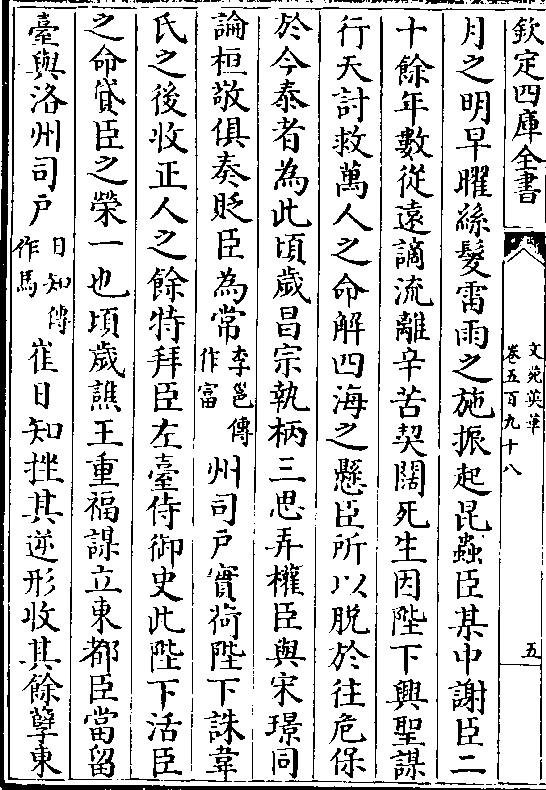 欽定四庫全書
文苑英華
卷五百九十八
五
月之明早曜絲髮雷雨之施振起昆蟲臣某中謝臣二
十餘年數從遠謫流離辛苦契闊死生因陛下興聖謀
行天討救萬人之命解四海之懸臣所以脫於往危保
於今泰者為此頃歲昌宗執柄三思弄權臣與宋璟同
論桓敬俱奏貶臣為常李邕傳作富州司戶實荷陛下誅韋
氏之後收正人之餘特拜臣左臺侍御史此陛下活臣
之命貸臣之榮一也頃歲譙王重福謀立東都臣當留
臺與洛州司戶日知傳作馬崔日知挫其逆形收其餘孽東